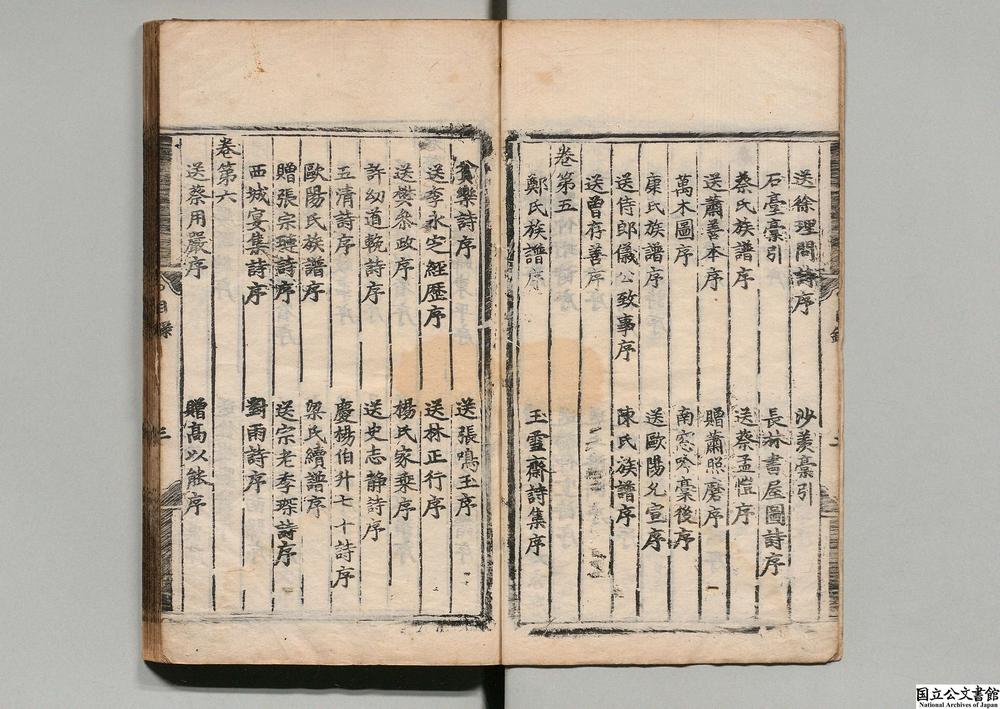 送徐理問詩序 沙羨藁引
石臺藁引 長林書屋圖詩序
蔡氏族譜序 送蔡孟愷序
送蕭善本序 贈蕭照磨序
萬木圖序 南窓吟藁後序
康氏族譜序 送歐陽允宣序
送侍郎儀公致事序 陳氏族譜序
送曾存善序
卷第五
鄭氏族譜序 玉雪齋詩集序
貧樂詩序 送張鳴玉序
送李永定經歷序 送林正行序
送樊參政序 楊氏家乘序
許幼道輓詩序 送史志靜詩序
五清詩序 慶楊伯升七十詩序
歐陽氏族譜序 梁氏續譜序
贈張宗璉詩序 送宗老季琛詩序
西城宴集詩序 對雨詩序
卷第六
送蔡用嚴序 贈高以能序
目錄
三
国立公文書館
National Archives of Japan